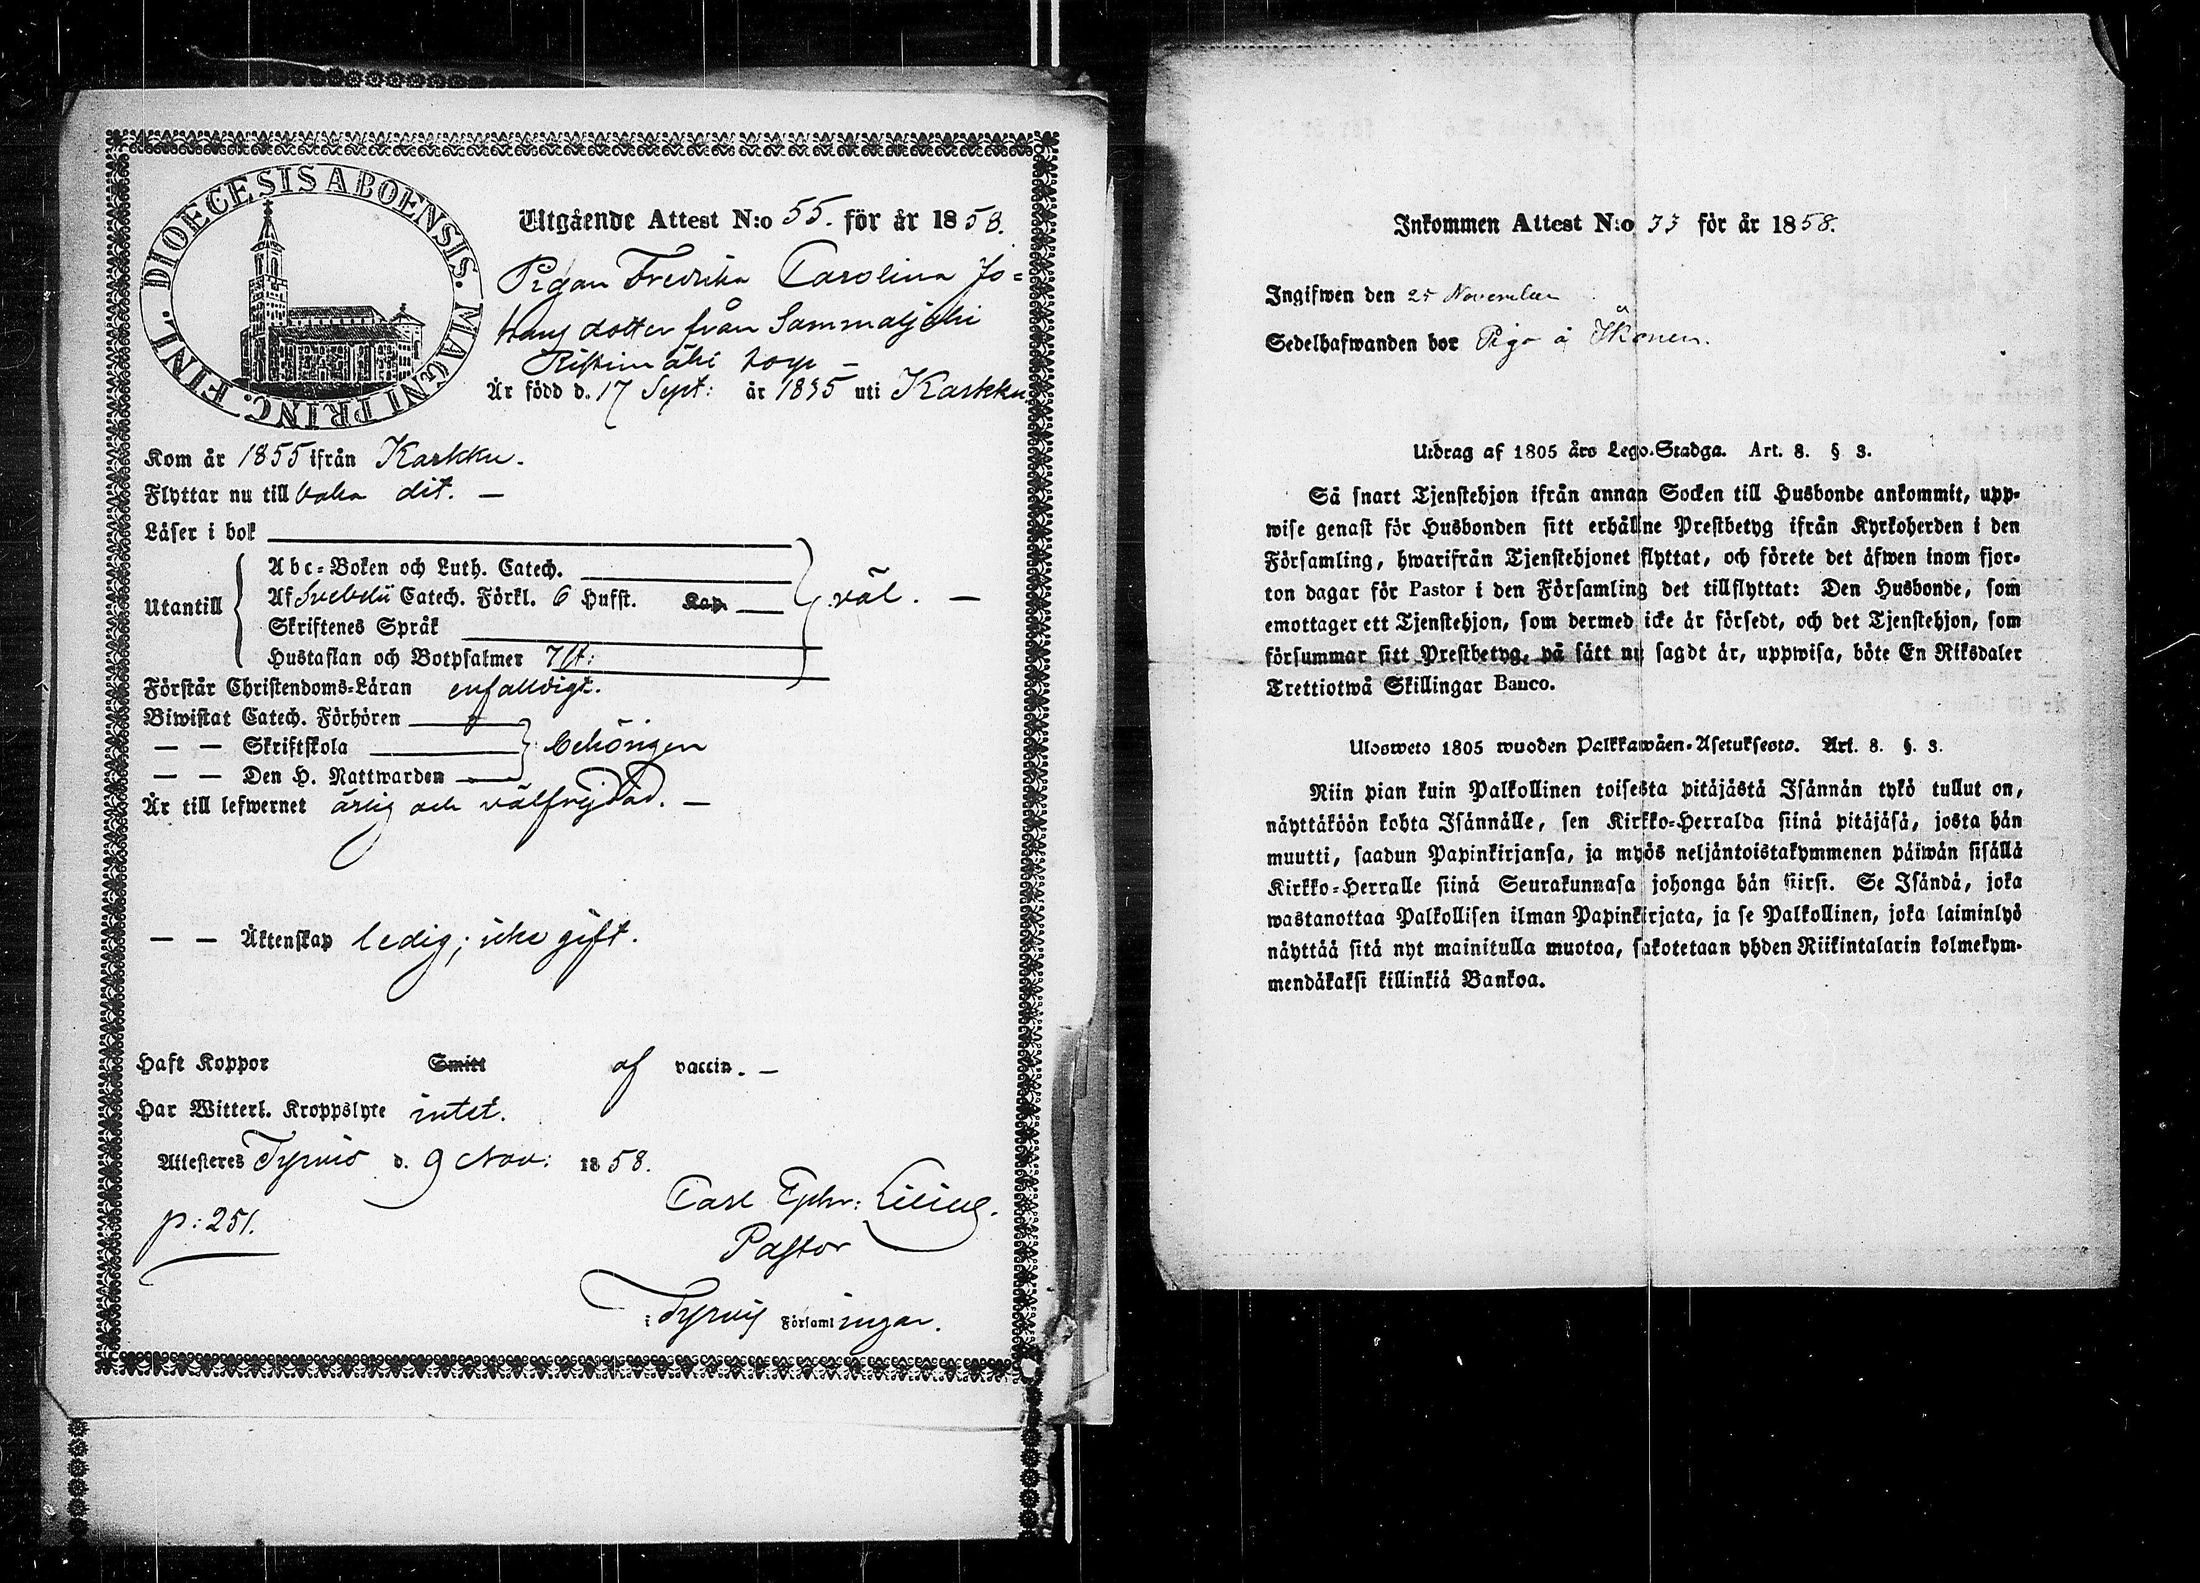 DIOECESIS ABOENSIS. MAGNI PRINC. FINL.
Utgående Attest N:o 55. för år 1858.
Pigan Fredrika Carolina Jo=
hans dotter från Sammaljoki
Ristimäki torp –
Är född d. 17 Sept: år 1835 uti Karkku.
Kom år 1855 ifrån Karkku.
Flyttar nu till baka dit. –
Läser i bok
Abc-Boken och Luth. Catech.
Utantill Af Svebelii Catech. Förkl. 6 Hufst. Kap. väl. –
Skriftenes Språk
Hustaflan och Botpsalmer 7 st:
Förstår Christendoms-Läran enfaldigt.
Biwistat Catech. Förhören
— — Skriftskola behörigen
— — Den H. Nattwarden
Är till lefwernet ärlig och välfrejdad. –
— — Äktenskap ledig; icke gift.
Haft Koppor Smitt af vaccin. –
Har Witterl. Kroppslyte intet.
Attesteres Tyrvis d. 9 Nov: 1858.
p: 251.
Carl Ephr: Lilius.
Pastor
i Tyrvis Församlingar.
Inkommen Attest N:o 33 för år 1858.
Ingifwen den 25 November
Sedelhafwanden bor Piga å
Utdrag af 1805 års Lego-Stadga. Art. 8. § 3.
Så snart Tjenstehjon ifrån annan Socken till Husbonde ankommit, upp-
wise genast för Husbonden sitt erhållne Prestbetyg ifrån Kyrkoherden i den
Församling, hwarifrån Tjenstehjonet flyttat, och förete det äfwen inom fjor-
ton dagar för Pastor i den Församling det tillflyttat: Den Husbonde, som
emottager ett Tjenstehjon, som dermed icke är försedt, och det Tjenstehjon, som
försummar sitt Prestbetyg, på sätt nu sagdt är, uppwisa, böte En Riksdaler
Trettiotwå Skillingar Banco.
Ulosweto 1805 wuoden Palkkawäen-Asetuksesta. Art. 8. §. 3.
Niin pian kuin Palkollinen toisesta pitäjästä Isännän tykö tullut on,
näyttäköön kohta Isännälle, sen Kirkko-Herralda siinä pitäjäsä, josta hän
muutti, saadun Papinkirjansa, ja myös neljäntoistakymmenen päiwän sisällä
Kirkko-Herralle siinä Seurakunnasa johonga hän siirsi. Se Isändä, joka
wastanottaa Palkollisen ilman Papinkirjata, ja se Palkollinen, joka laiminlyö
näyttää sitä nyt mainitulla muotoa, sakotetaan yhden Riikintalarin kolmekym-
mendäkaksi killinkiä Bankoa.